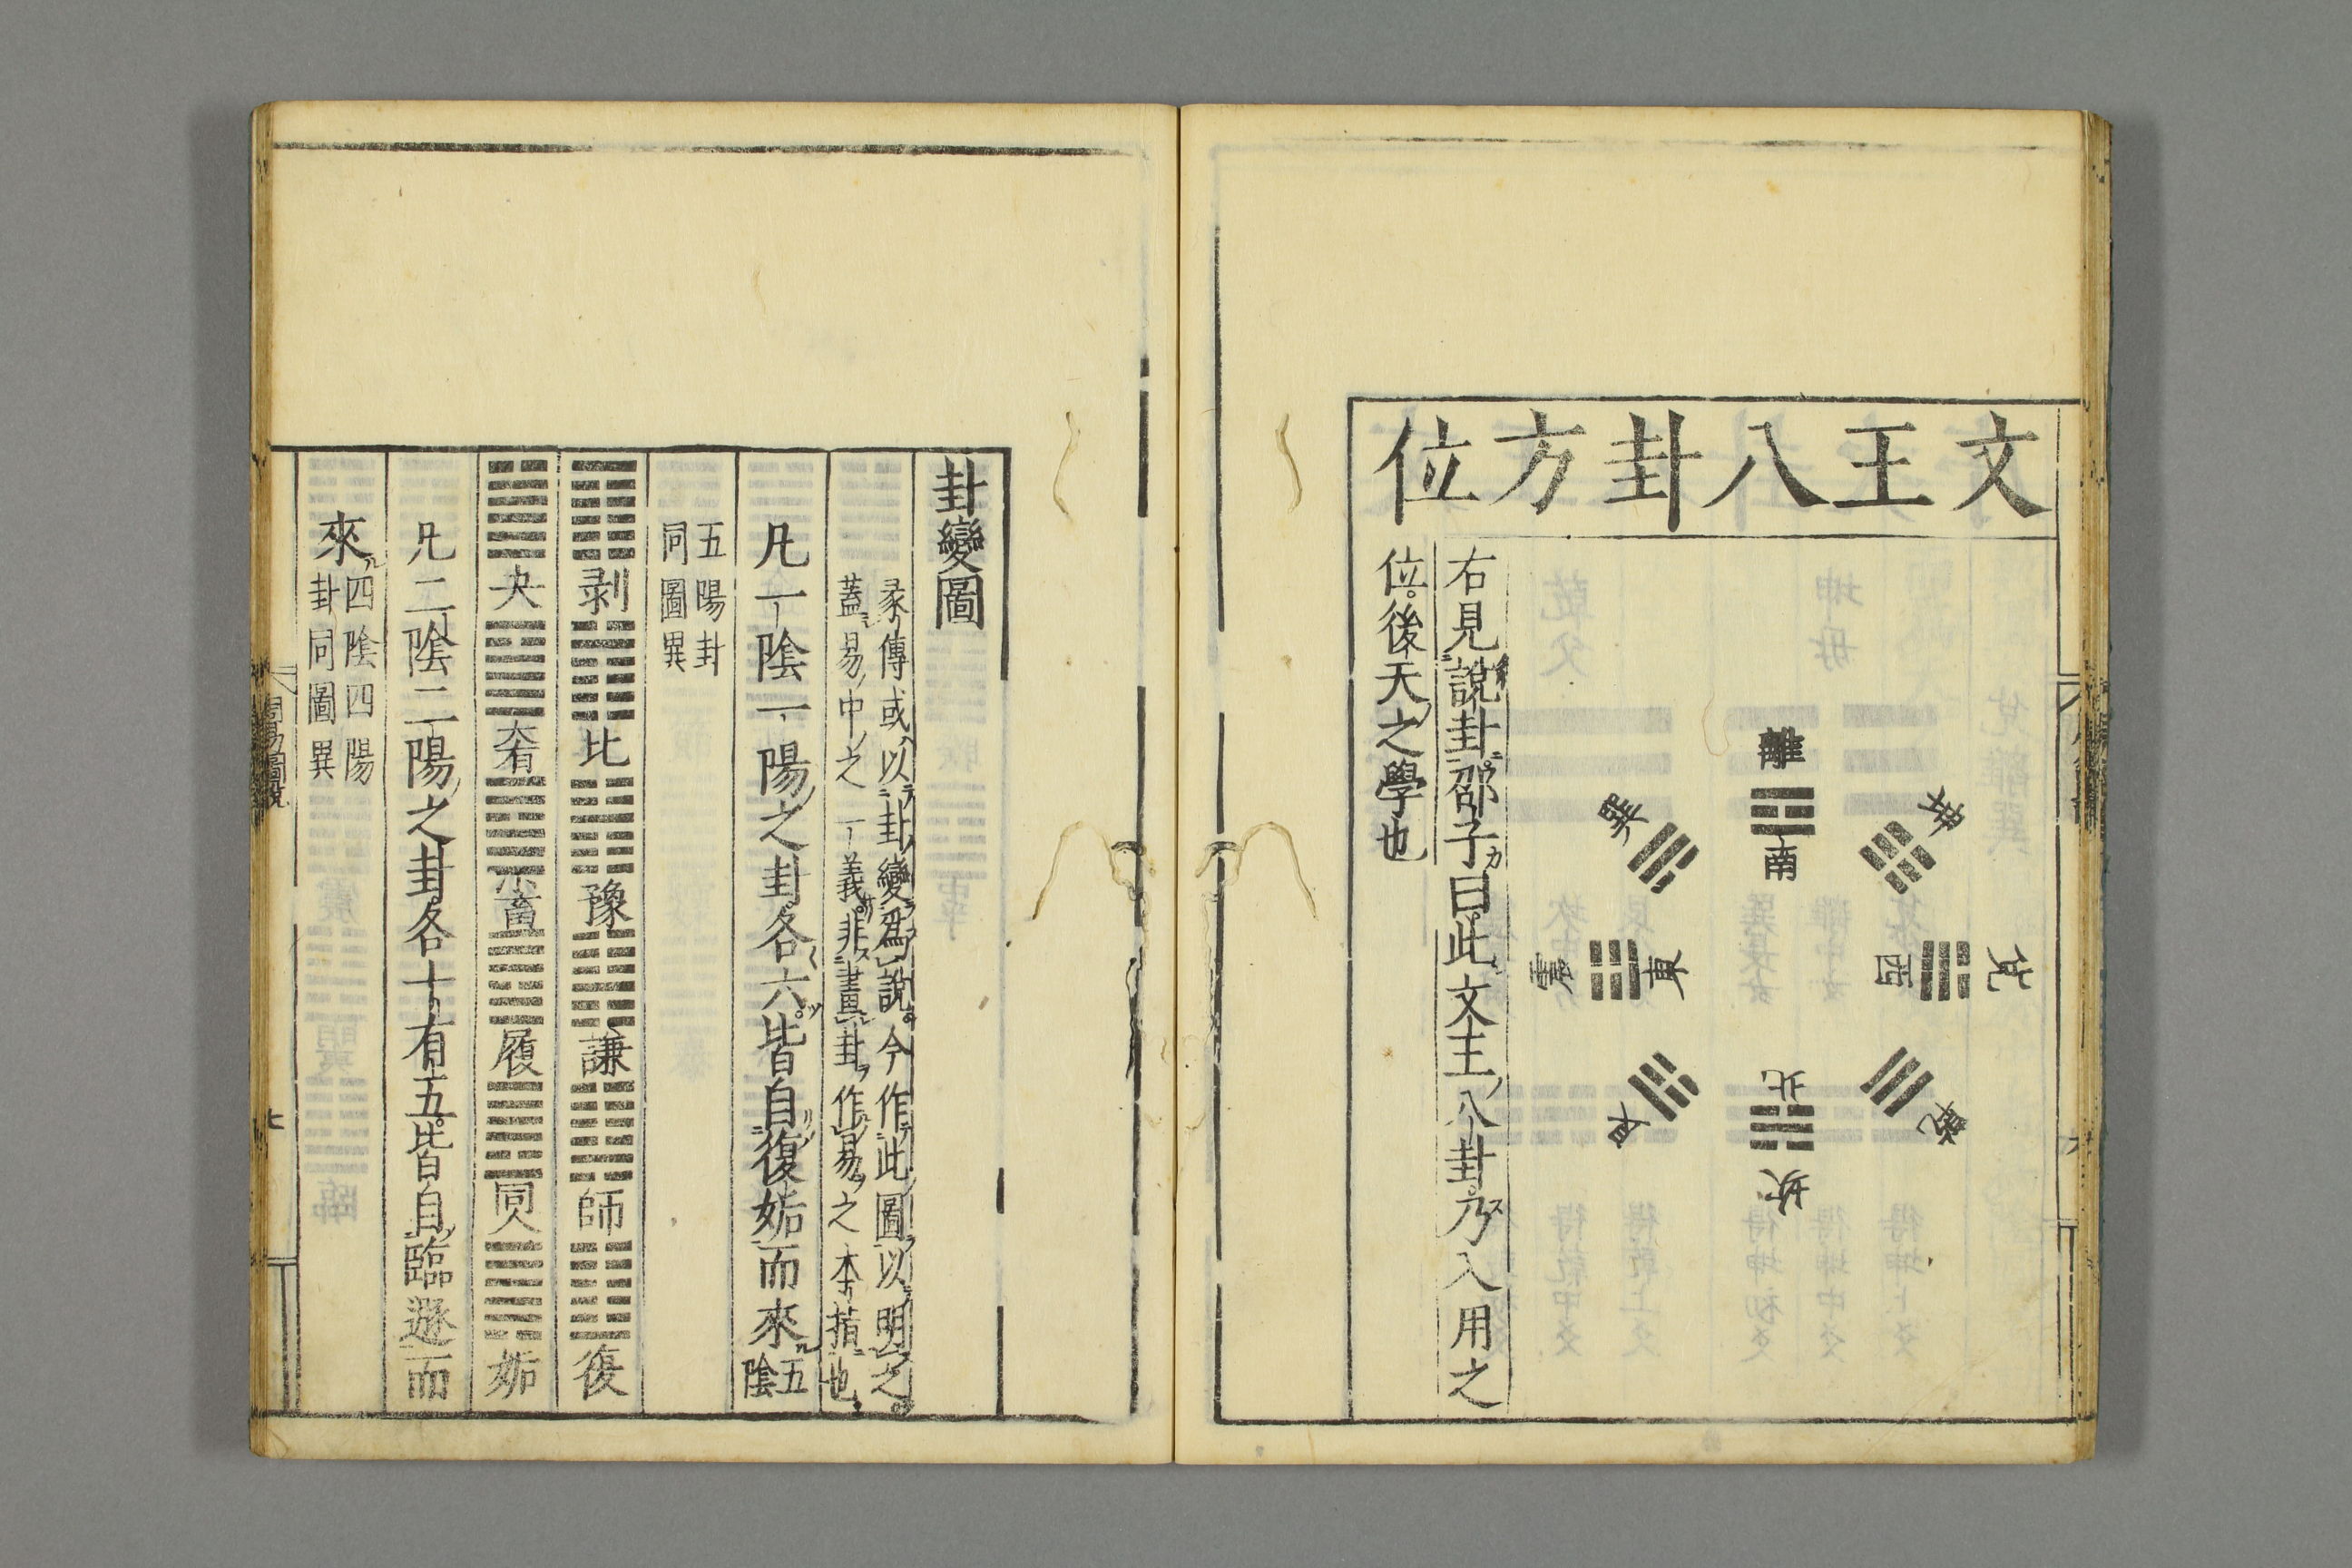 文王八卦方位
離
南
坤
兌
西
乾
坎
北
艮
震
東
巽
右見説卦邵子曰此文王八卦乃入用之
位後天之學也
卦變圖
彖傳或以卦變爲說今作此圖以明之
蓋易中之一義非畫卦作易之本指也
凡一陰一陽之卦各六皆自復姤而來五陰
五陽卦
同圖異
剥 比 豫 謙 師 復
夬 大有 小畜 履 同人 姤
凡二陰二陽之卦各十有五皆自臨遯而
來四陰四陽
卦同圖異
周易圖說
七